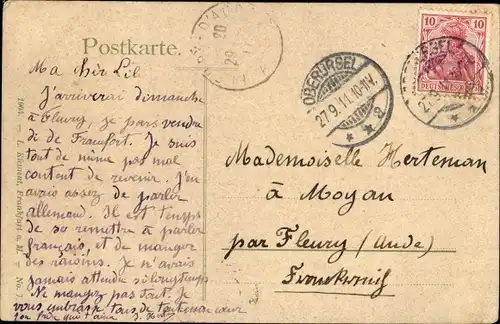 Postkarte.
Ma chère Lil
J'arriverai dimanche
à Fleury, je pars vendre
di de Francfort. Je suis
tout de même pas mal
content de revenir. J'en
avais assez de parler
allemand. Il est temps
de se remettre à parler
français, et de manger
des raisins. Je n'avais
jamais attendu si longtemps
Ne mangez pas tout. Je
vous embrasse tous de tout mon cœur
ton frère qui t'aime
1904. - L. Klement, Frankfurt a. M. No.
OBERURSEL
27.9.11.10-11V.
* * 2
10
DEUTSCHES REICH
Mademoiselle Herteman
à Moyan
par Fleury (Aude)
Frankreich